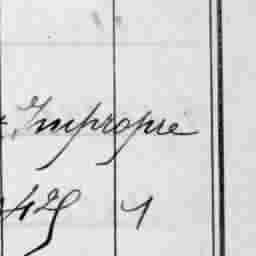 Impropre
425 1